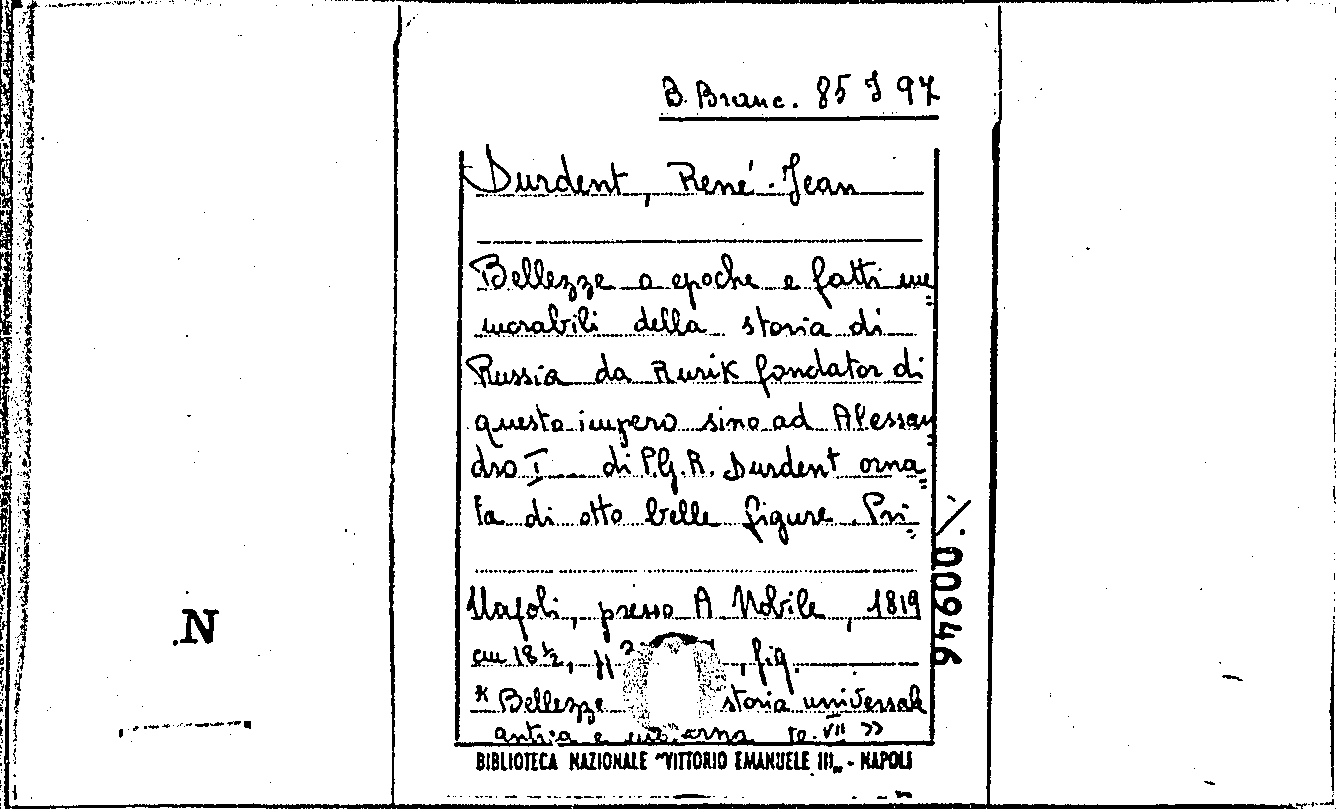 B. Branc. 85 J 97
Durdent, René-Jean
Bellezze o epoche e fatti me=
morabili della storia di
Russia da Rurik fondator di
questo impero sino ad Alessan=
dro I di P.G.R. Durdent orna=
ta di otto belle figure. Pri=
Napoli, presso A Nobile, 1819
cm 18 ½, fig.
"Bellezze storia universale
antica e moderna te. VII"
BIBLIOTECA NAZIONALE "VITTORIO EMANUELE III" - NAPOLI
00946
N